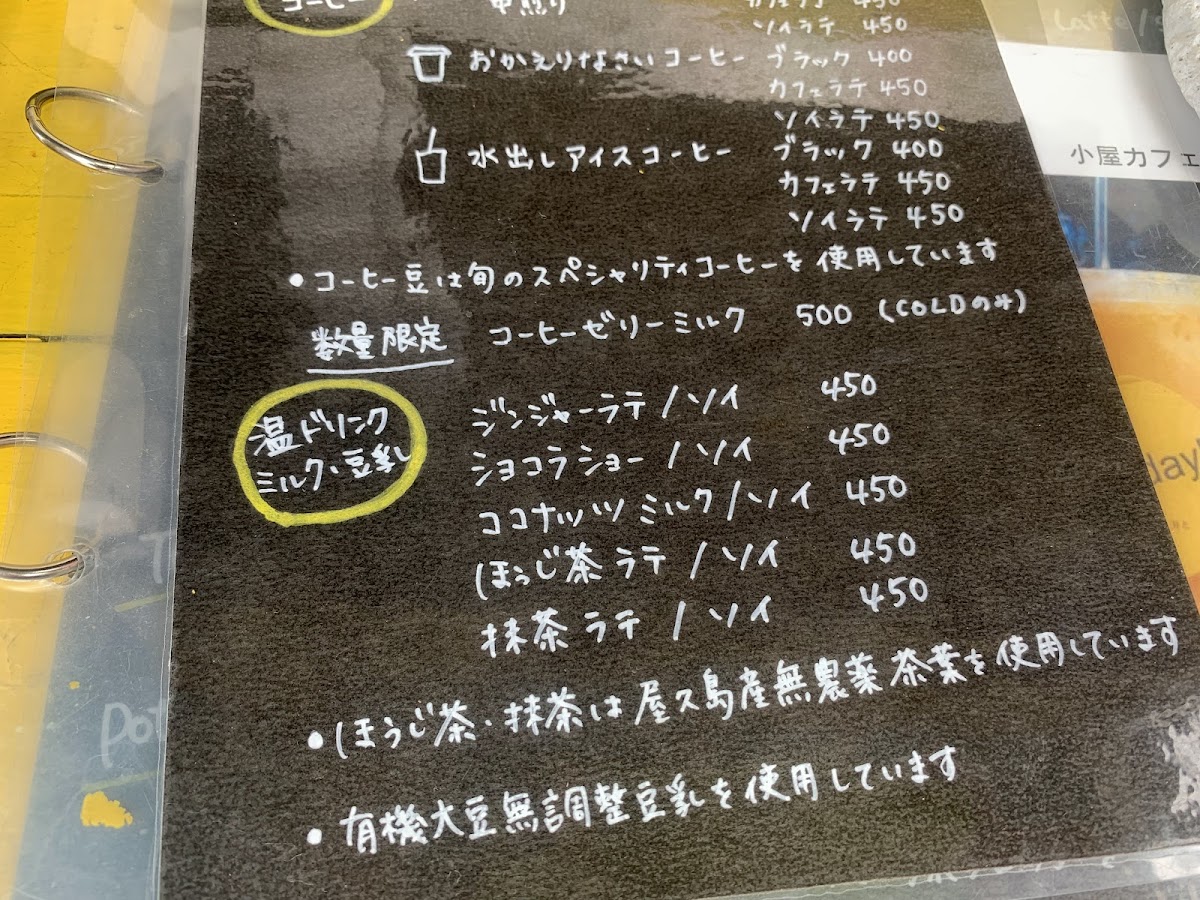 コーヒー 中煎り カフェラテ 450
ソイラテ 450
おかえりなさいコーヒー ブラック 400
カフェラテ 450
ソイラテ 450
水出しアイスコーヒー ブラック 400
カフェラテ 450
ソイラテ 450
小屋カフェ
• コーヒー豆は旬のスペシャリティコーヒーを使用しています
数量限定 コーヒーゼリーミルク 500 (COLDのみ)
温ドリンク
ミルク・豆乳
ジンジャーラテ / ソイ 450
ショコラショー / ソイ 450
ココナッツミルク / ソイ 450
ほうじ茶ラテ / ソイ 450
抹茶ラテ / ソイ 450
• ほうじ茶・抹茶は屋久島産無農薬茶葉を使用しています
• 有機大豆無調整豆乳を使用しています
day